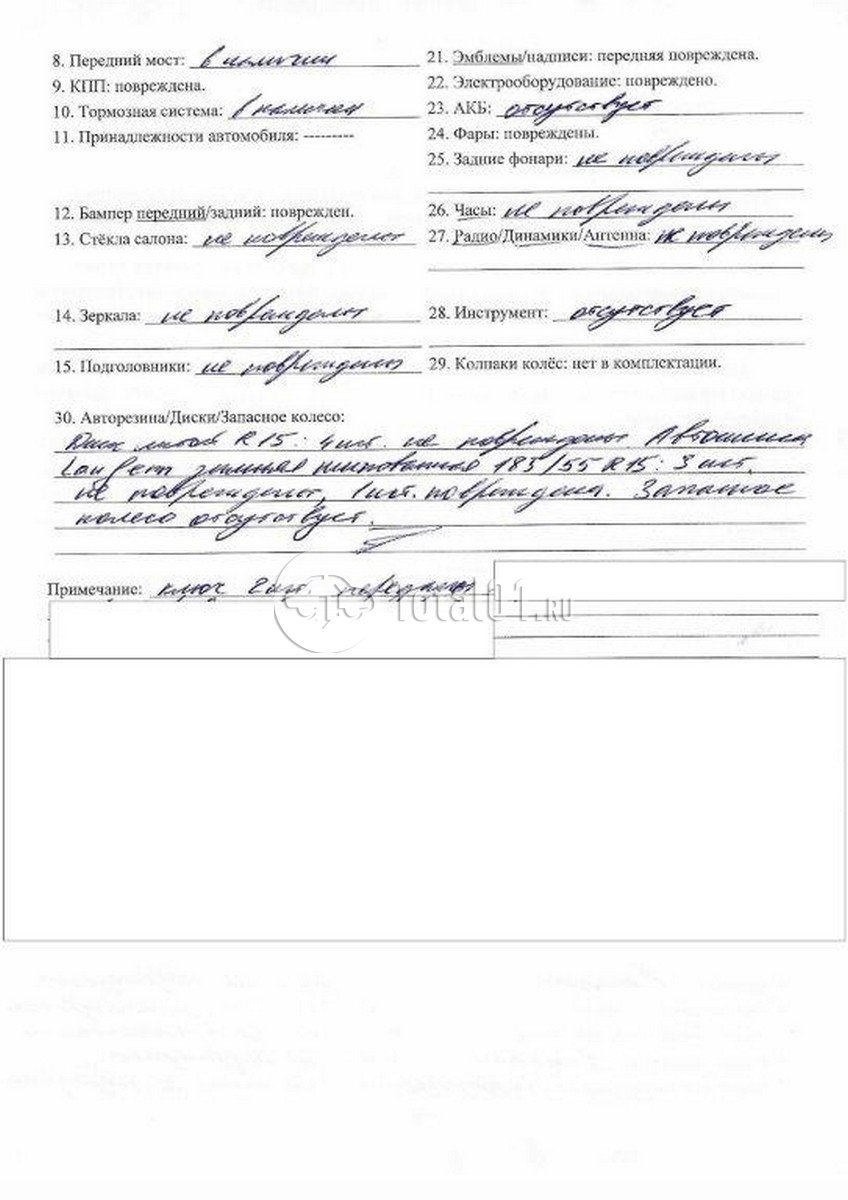 8. Передний мост: в наличии
9. КПП: повреждена.
10. Тормозная система: в наличии
11. Принадлежности автомобиля: ---------
12. Бампер передний/задний: поврежден.
13. Стёкла салона: не повреждены
14. Зеркала: не повреждены
15. Подголовники: не повреждены
21. Эмблемы/надписи: передняя повреждена.
22. Электрооборудование: повреждено.
23. АКБ: отсутствует
24. Фары: повреждены.
25. Задние фонари: не повреждены
26. Часы: не повреждены
27. Радио/Динамики/Антенна: не повреждены
28. Инструмент: отсутствует
29. Колпаки колёс: нет в комплектации.
30. Авторезина/Диски/Запасное колесо:
Диск литой R15: 4 шт. не повреждены Автошина
зимняя шипованная 185/55 R15: 3 шт.
не повреждены, 1 шт. повреждена. Запасное
колесо отсутствует.
Примечание: ключ 2 шт. переданы
Total01.RU